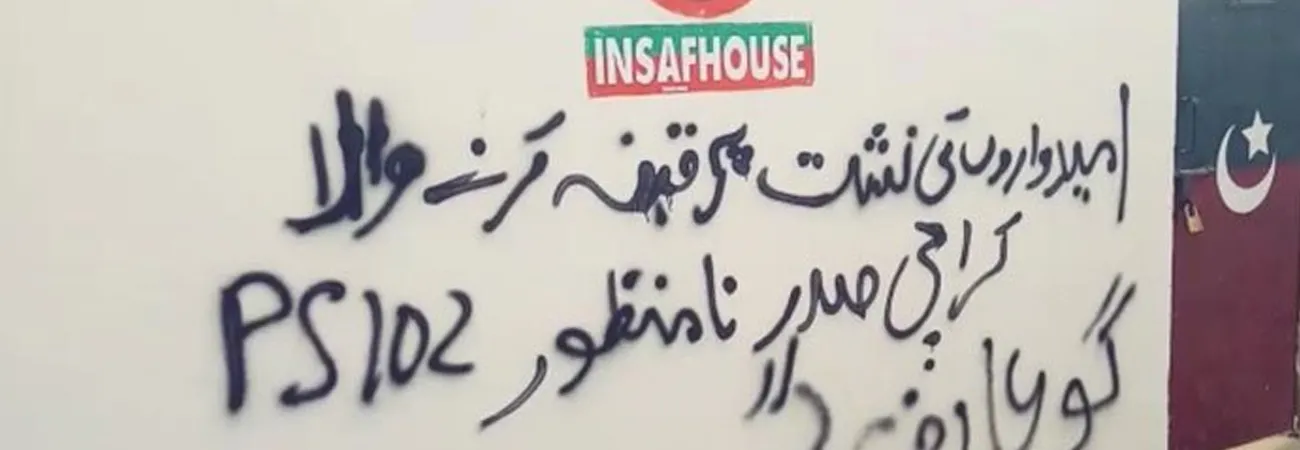 INSAFHOUSE
امیدواروں کی نشت پر قبضہ کرنے والا
کراچی صدر نا منظور PS 102
گو